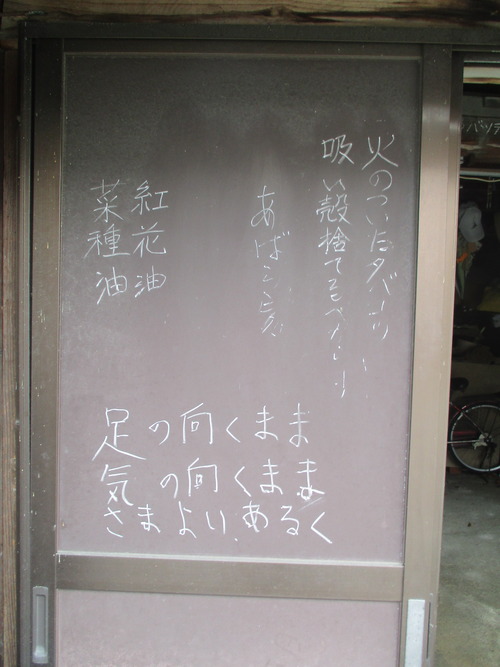 火のついたタバコ
吸い殻捨てるべからず
あばらこぼ
紅花油
菜種油
足の向くまま
気の向くまま
さまよいあるく